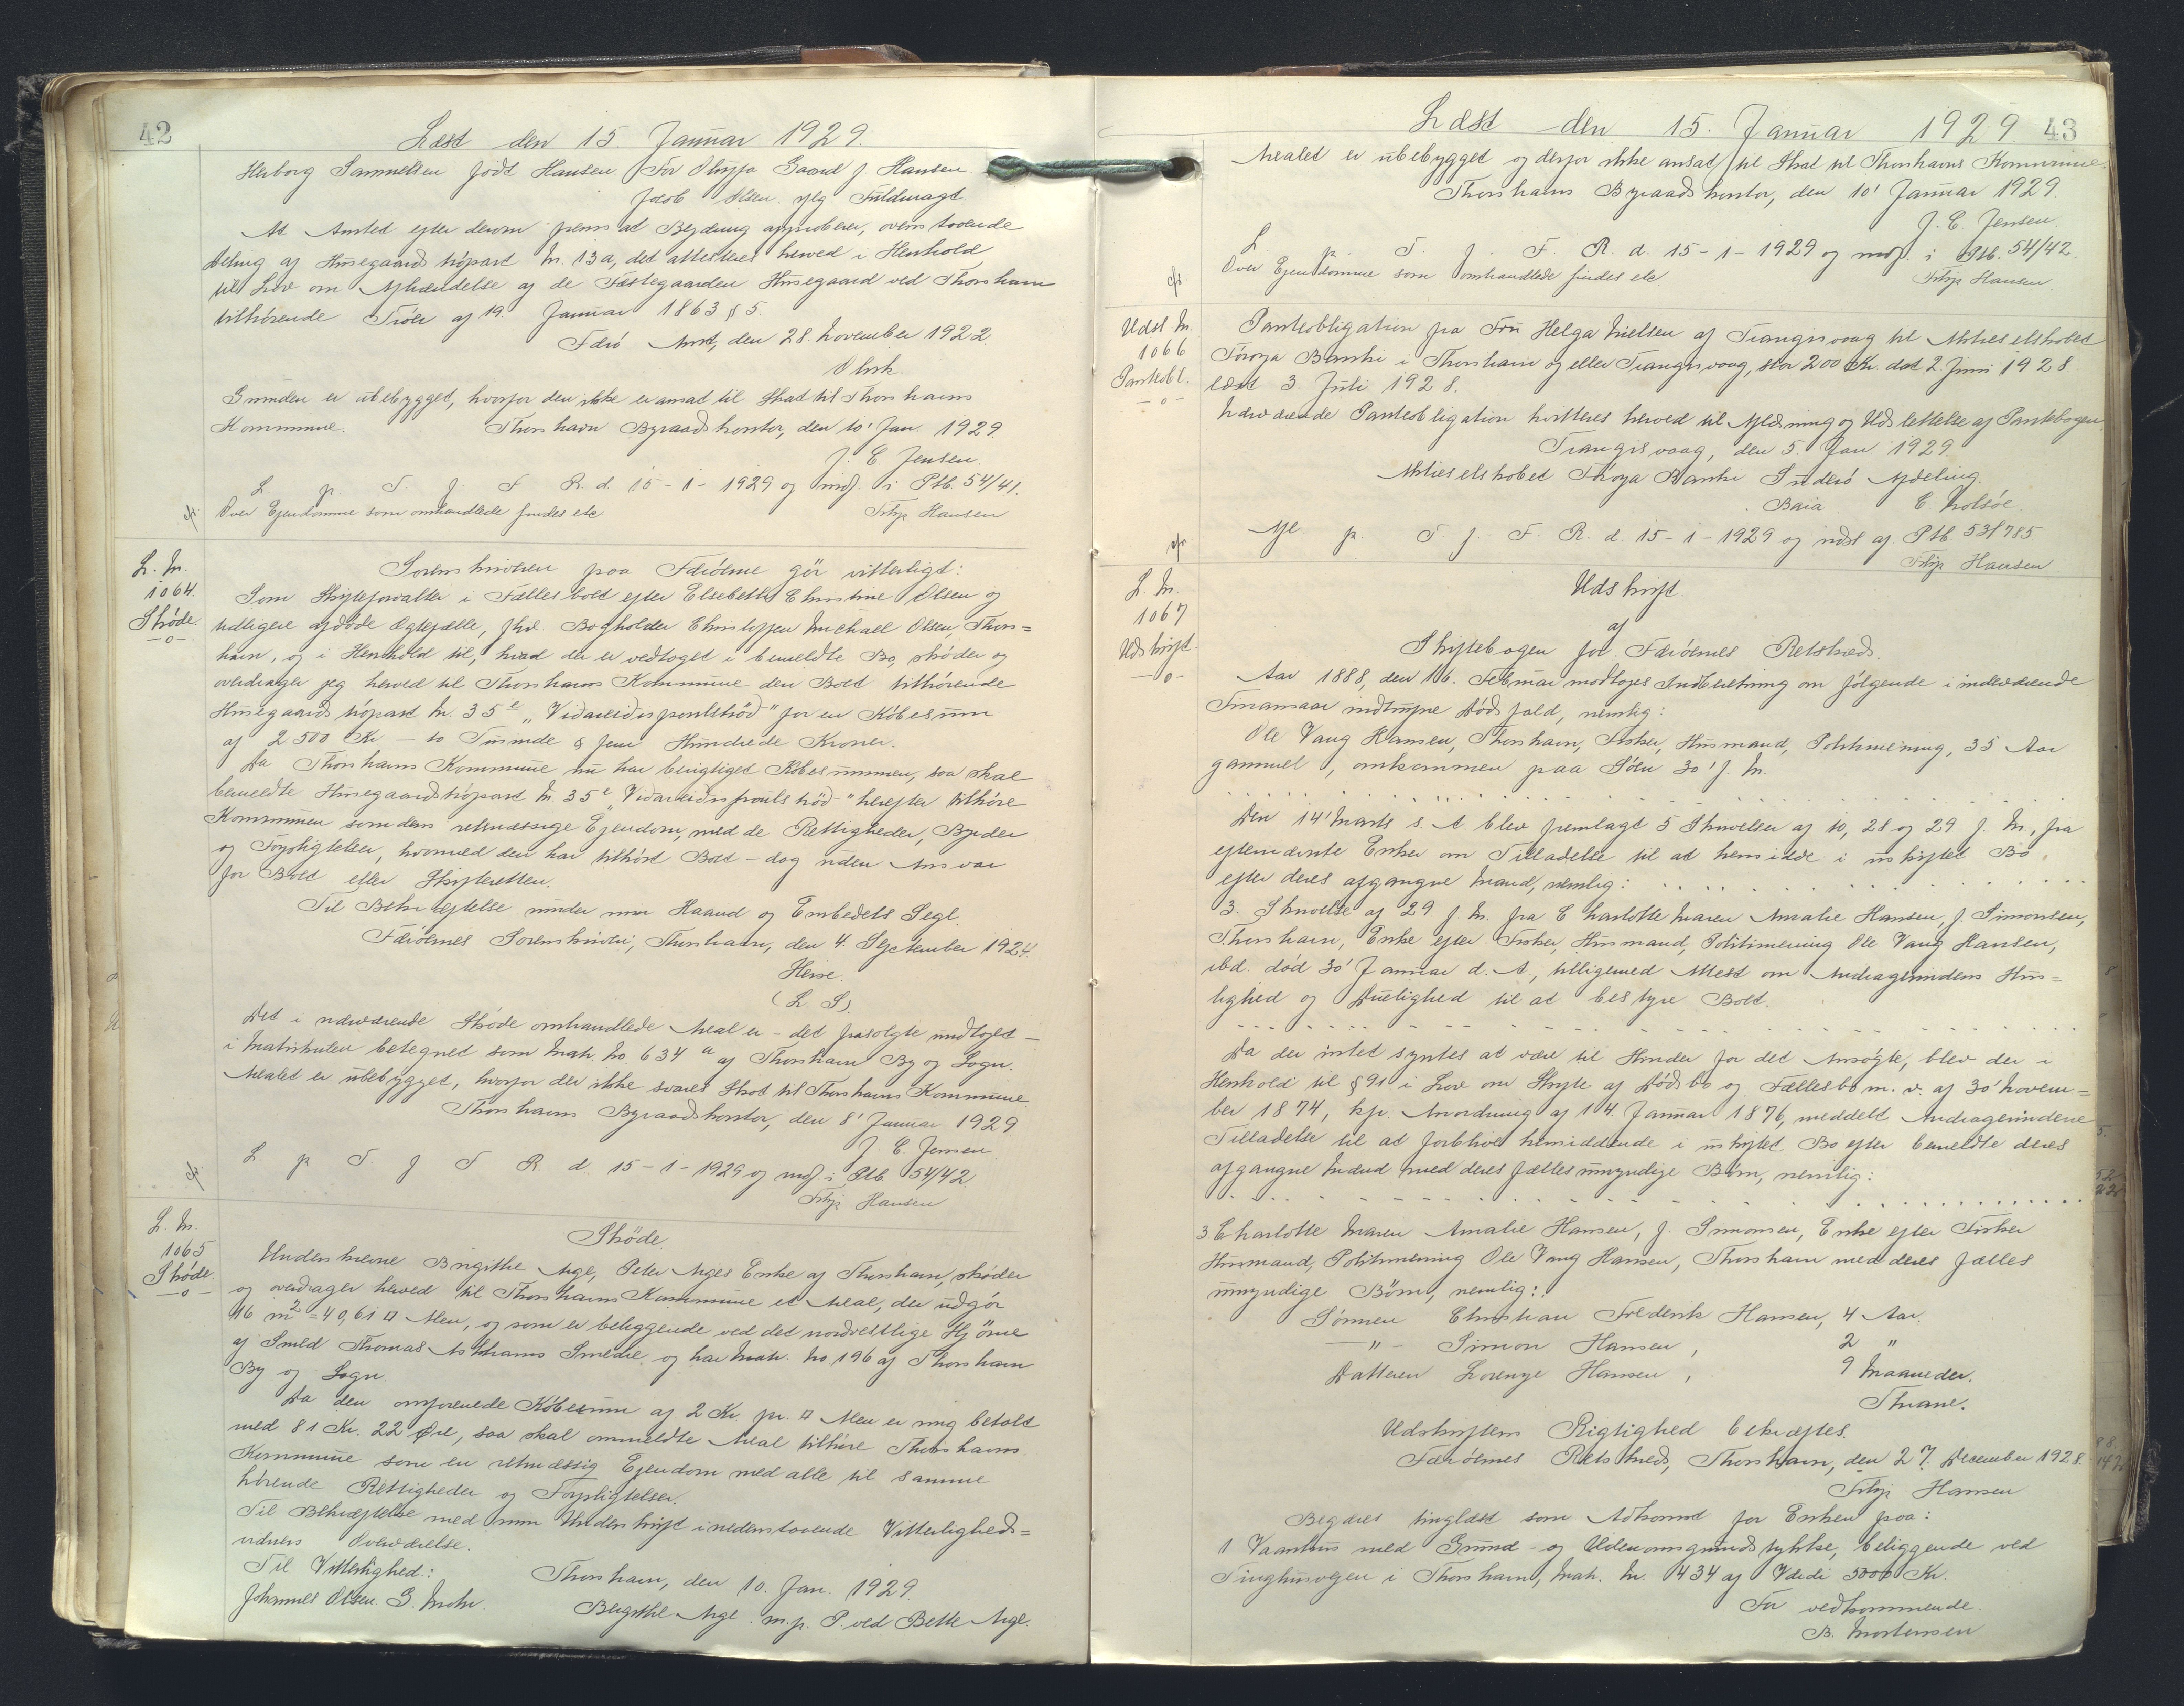 42
Læst den 15. Januar 1929.
Herborg Samuelsen født Hansen For Olufa Gaard f Hansen
Jacob Olsen iflg Fuldmagt.
At Amtet efter derom fremsat Begæring approberer, ovenstaaende
Deling af Húsegaards tröpart Nr. 13a, det attesteres herved i Henhold
til Lov om Afhændelse af de Fæstegaarden Húsegaard ved Thorshavn
tilhørende Tröer af 19. Januar 1863 § 5.
Færø Amt, den 28. November 1922.
Grunden er ubebygget, hvorfor den ikke er ansat til Skat til Thorshavns
Kommune. Thorshavn Byraadskontor, den 10' Jan. 1929.
J. C. Jensen.
L p T f F R. d. 15-1-1929 og indf. i Ptb. 54/41.
cfr Over Ejendomme som omhandlede findes etc Filip Hansen
L. Nr.
1064.
Skøde.
-o-
Sorenskriveren paa Færøerne gör vitterligt:
Som Skifteforvalter i Fællesboet efter Elsebeth Christine Olsen og
tidligere afdøde Ægtefælle, fhv. Bogholder Christoffer Michael Olsen, Thors=
havn, og i Henhold til, hvad der er vedtaget i bemeldte Bo, skøder og
overdrager jeg herved til Thorshavns Kommune den Boet tilhörende
Húsegaards tröpart Nr. 35e "Vidareidispoulströd" for en Köbesum
af 2500 Kr - to Tusinde & fem Hundrede Kroner.
Da Thorshavns Kommune nu har berigtiget Købesummen, saa skal
bemeldte Húsegaardströpart Nr. 35e "Vidareidispoulströd" herefter tilhöre
Kommunen som dens retmæssige Ejendom, med de Rettigheder, Byrder
og Forpligtelser, hvormed den har tilhört Boet - dog uden Ansvar
for Boet eller Skifteretten.
Til Bekræftelse under min Haand og Embedets Segl.
Færøernes Sorenskriveri, Thorshavn, den 4. September 1924.
Heise.
(L. S)
Det i nærværende Skøde omhandlede Areal er - det frasolgte undtaget -
i Matrikulen betegnet som Matr. No 634a af Thorshavn By og Sogn.
Arealet er ubebygget, hvorfor der ikke svares Skat til Thorshavns Kommune
Thorshavns Byraadskontor, den 8' Januar 1929
J. C. Jensen.
cfr L p T f F R. d. 15-1-1929 og indf. i Ptb 54/42.
Filip Hansen
L. Nr.
1065
Skøde
-o-
Skøde.
Underskrevne Birgithe Arge, Peter Arges Enke af Thorshavn, skøder
og overdrager herved til Thorshavns Kommune et Areal, der udgör
16 m2 = 40,61 □ Alen, og som er beliggende ved det nordvestlige Hjörne
af Smed Thomas Askhams Smedie, og har Matr. No 196 af Thorshavn
By og Sogn.
Da den omforenede Købesum af 2 Kr. pr. □ Alen er mig betalt
med 81 Kr. 22 Øre, saa skal ommeldte Areal tilhöre Thorshavns
Kommune som en retmæssig Ejendom med alle til samme
hörende Rettigheder og Forpligtelser.
Til Bekræftelse med min Underskrift i nedenstaaende Vitterligheds=
vidners Overværelse.
Til Vitterlighed: Thorshavn, den 10. Jan. 1929.
Johannes Olsen. G. Mohr. Birgithe Arge m. p. P. ved Bette Arge.
Læst den 15. Januar 1929 43
Arealet er ubebygget og derfor ikke ansat til Skat til Thorshavns Kommune.
Thorshavns Byraadskontor, den 10' Januar 1929.
J. C. Jensen
L p. T. f. F. R. d. 15-1-1929 og indf. i Ptb. 54/42.
cfr. Over Ejendomme som omhandlede findes etc. Filip Hansen.
Udsl. Nr.
1066
Pantobl.
-o-
Panteobligation fra Frú Helga Nielsen af Trangisvaag til Aktieselskabet
Föroya Banki i Thorshavn og eller Trangisvaag, stor 200 Kr. dat 2. Juni 1928.
læst 3. Juli 1928.
Nærværende Panteobligation kvitteres herved til Aflæsning og Udslettelse af Pantebogen.
Trangisvaag, den 5. Jan 1929
Aktieselskabet Föroya Banki Suderö Afdeling.
Baia. C. Holsöe.
cfr Afl. p. T. f. F. R. d. 15-1-1929 og udsl af Ptb 53/785
Filip Hansen
L. Nr.
1067
Udskrift.
-o-
Udskrift.
af
Skiftebogen for Færöernes Retskreds.
Aar 1888, den 16. Februar modtoges Indberetning om fölgende i indeværende
Finansaar indtrufne Dödsfald, nemlig:
Ole Vang Hansen, Thorshavn, Fisker, Húsmand, Politimening, 35 Aar
gammel, omkommen paa Söen 30' f. M.
Den 14' Marts s. A. blev fremlagt 5 Skrivelser af 10, 28 og 29 f. M., fra
efternævnte Enker om Tilladelse til at hensidde i uskiftet Bo
efter deres afgangne Mænd, nemlig:
3. Skrivelse af 29 f. M. fra Charlotte Maren Amalie Hansen, f. Simonsen,
Thorshavn, Enke efter Fisker, Húsmand, Politimening Ole Vang Hansen,
ibd. död 30' Januar d. A., tilligemed Attest om Andragerindens Hús=
lighed og Duelighed til at bestyre Boet.
Da der intet syntes at være til Hinder for det Ansögte, blev der i
Henhold til § 91 i Lov om Skifte af Dödsbo og Fællesbo m. v. af 30' Novem=
ber 1874, kfr. Anordning af 14. Januar 1876, meddelt Andragerinderne
Tilladelse til at forblive hensiddende i uskiftet Bo efter bemeldte deres
afgangne Mænd med deres fælles umyndige Börn, nemlig:
3. Charlotte Maren Amalie Hansen, f. Simonsen, Enke efter Fisker
Húsmand, Politimening Ole Vang Hansen, Thorshavn med deres fælles
umyndige Börn, nemlig:
Sønnen Christian Frederik Hansen, 4 Aar.
-"- Simon Hansen, 2 "
Datteren Lorenze Hansen, 9 Maaneder.
Thrane.
Udskriftens Rigtighed bekræftes.
Færöernes Retskreds, Thorshavn, den 27. December 1928.
Filip Hansen
Begæres tinglæst som Adkomst for Enken paa:
1 Vaanhus med Grund- og Udenomsgrundstykke, beliggende ved
Tinghúsvegen i Thorshavn, Matr. Nr. 434 af Værdi 5000 Kr.
For vedkommende.
B. Mortensen